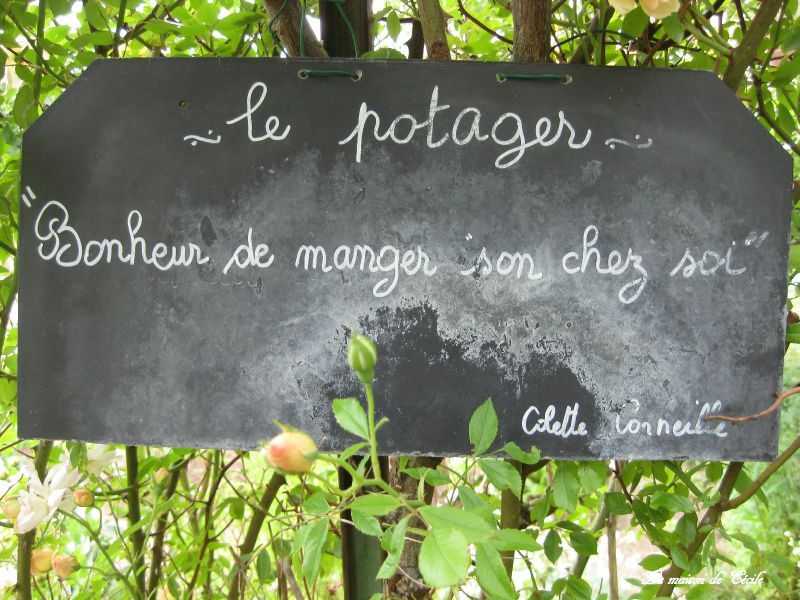 ~ le potager ~
"Bonheur de manger "son chez soi"
Colette Corneille
La maison de Cécile